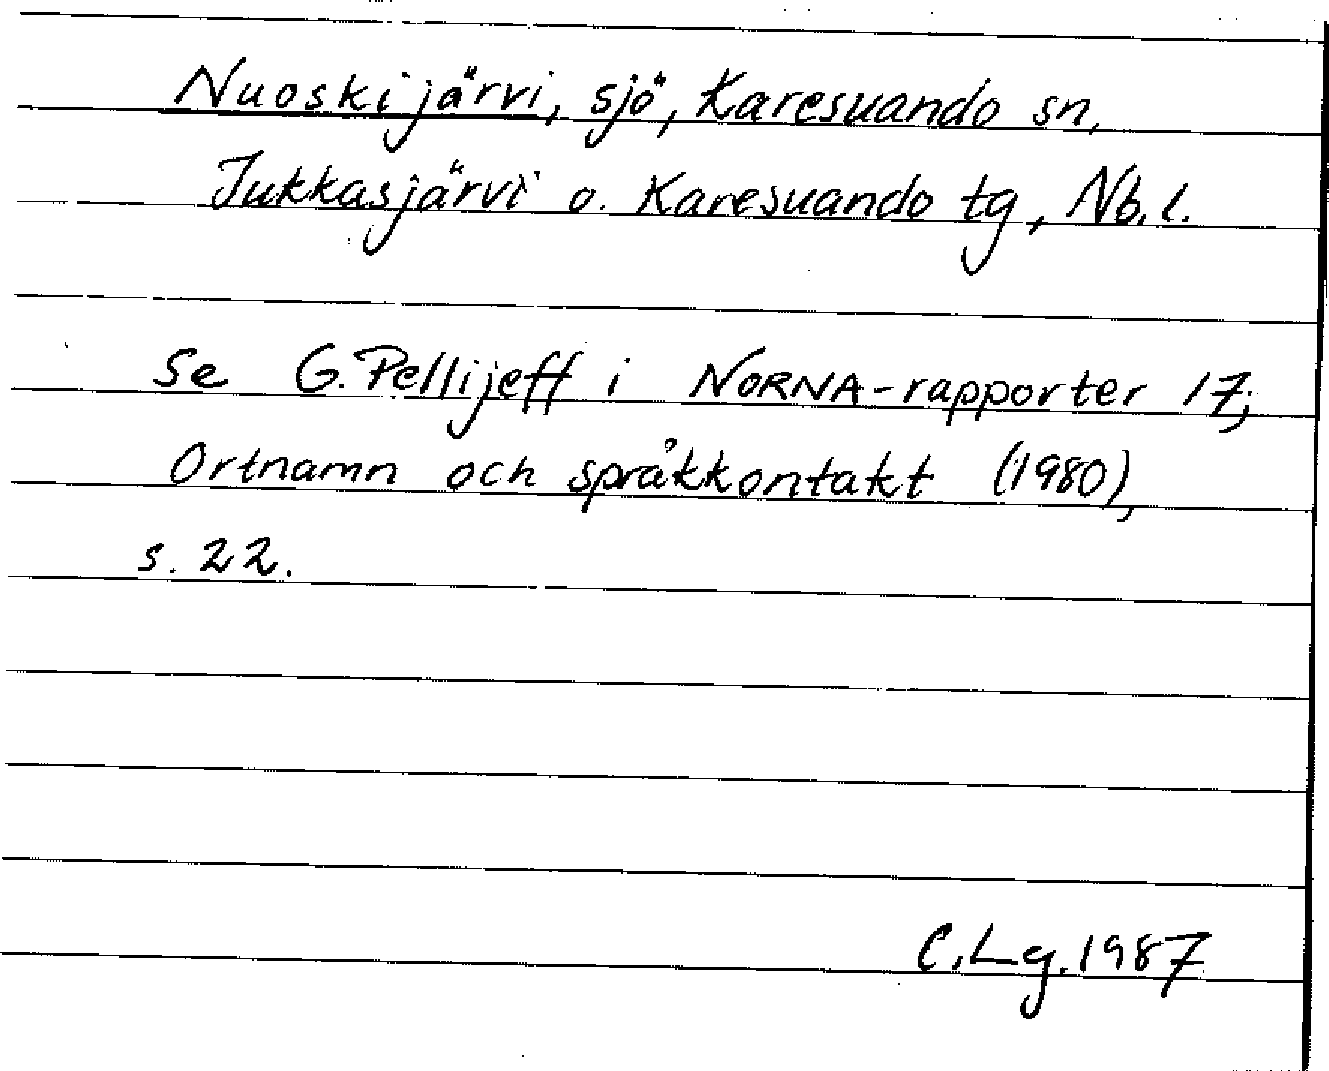 Nuoskijärvi, sjö, Karesuando sn,
Jukkasjärvi o. Karesuando tg, Nb. l.
Se G. Pellijeff i NORNA-rapporter 17;
Ortnamn och språkkontakt (1980),
s. 22.
C. Lg. 1987